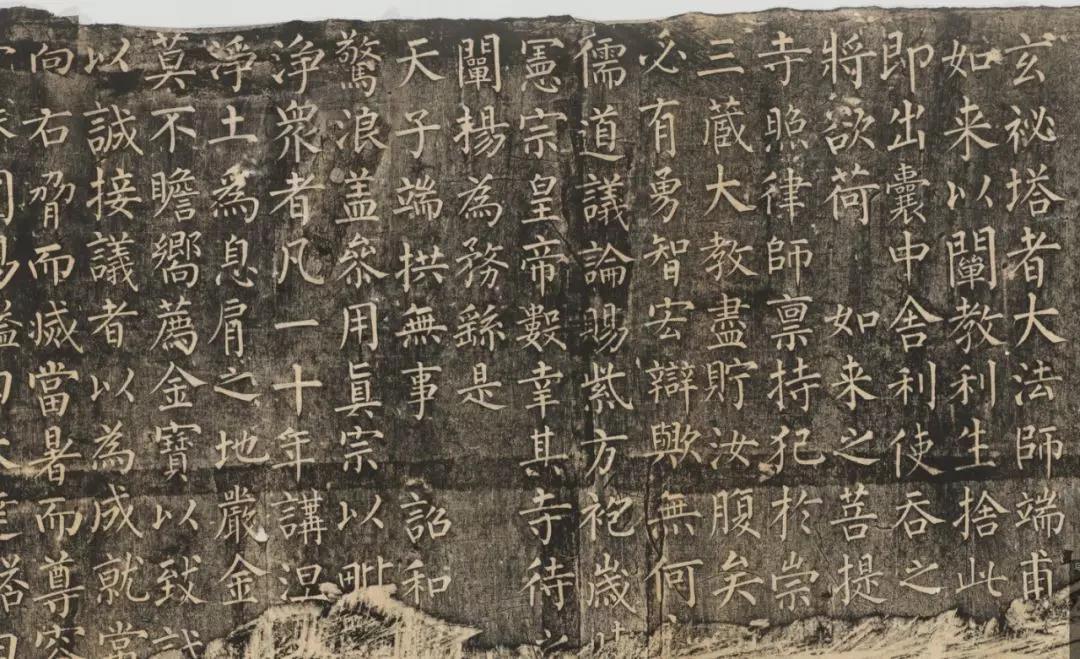 玄祕塔者大法師端甫
如来以闡教利生捨此
即出囊中舍利使吞之
將欲荷 如来之菩提
寺照律師禀持犯於崇
三蔵大教盡貯汝腹矣
必有勇智宏辯歟無何
儒道議論賜紫方袍歲時
憲宗皇帝數幸其寺待之
闡揚為務繇是
天子端拱無事 詔和
驚浪盖叅用真宗以毗
浄衆者凡一十年講涅
浄土為息肩之地嚴金
莫不瞻嚮薦金寶以致誠
以誠接議者以為成就常
向右脅而滅當暑而尊容